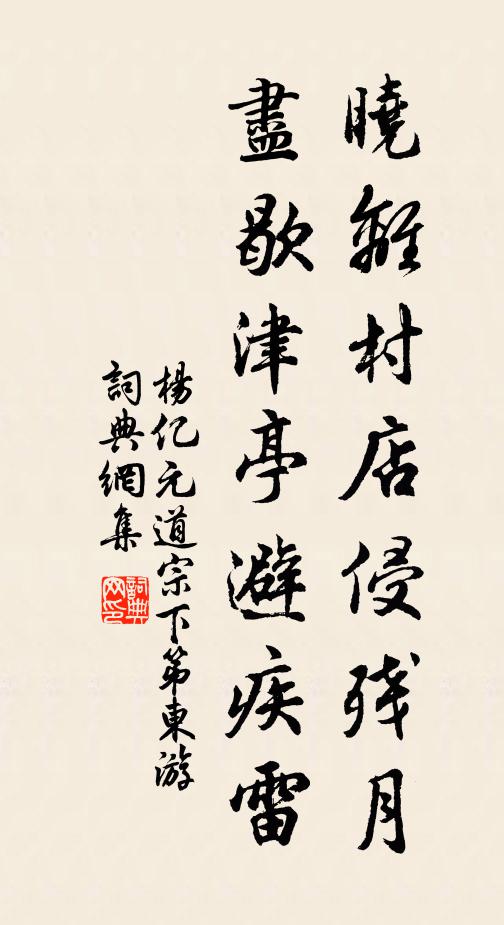 曉離村店侵残月
盡歇津亭避疾雷
楊亿元道宗下第東游
詞典網集
詞典网印